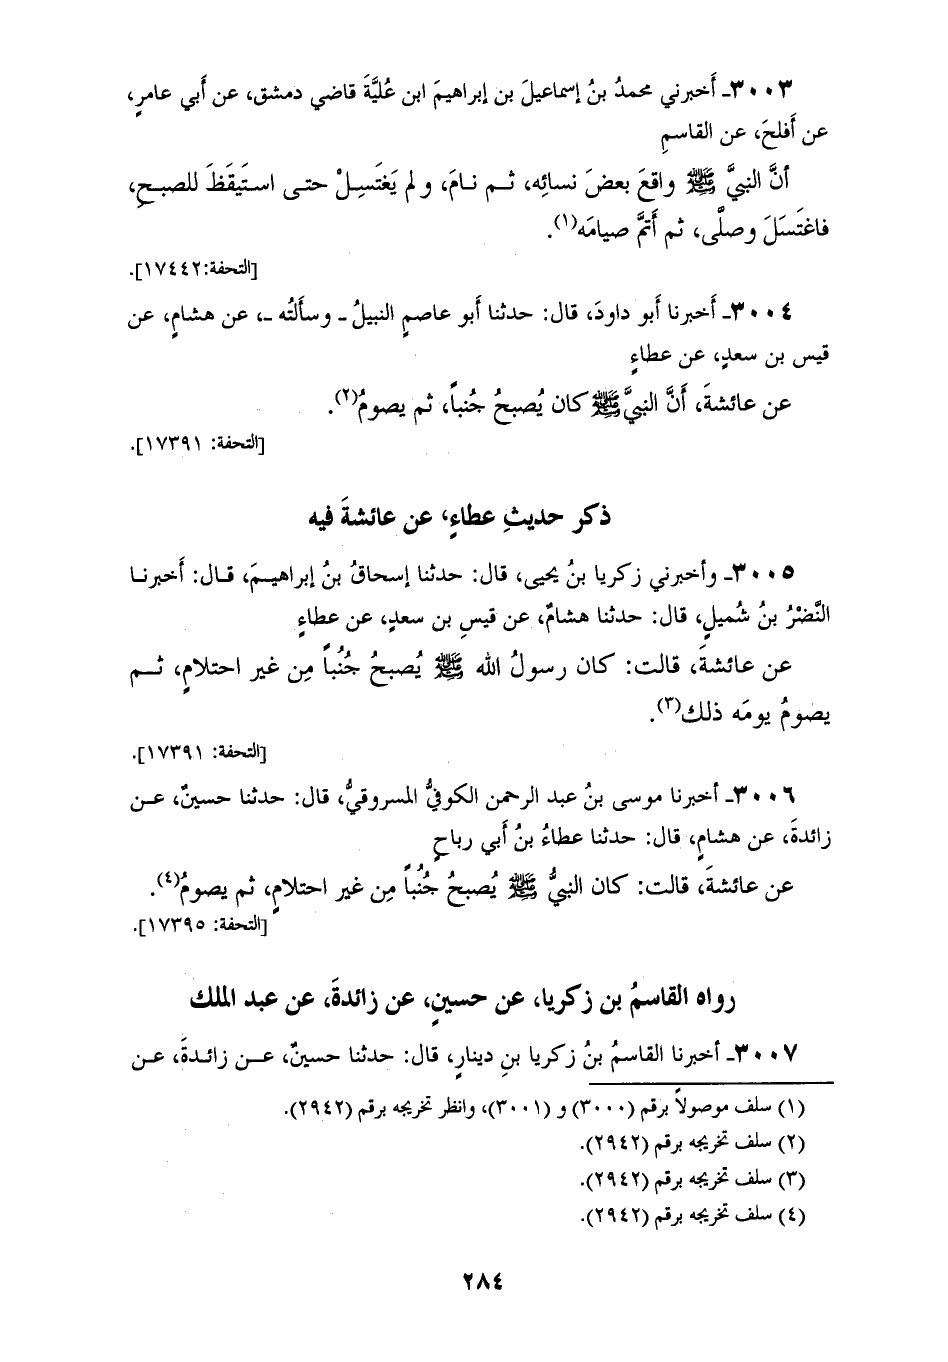 ٣٠٠٣ـ أَخبرني محمدُ بنُ إسماعيلَ بن إبراهيمَ ابن عُليَّةَ قاضي دمشق، عن أَبي عامرٍ،
عن أَفلحَ، عن القاسمِ
أنَّ النبيَّ ﷺ واقعَ بعضَ نسائِه، ثـم نـامَ، ولم يَغتَسِـلْ حتـى استَيقَظَ للصبـحِ،
فاغتَسَلَ وصلَّى، ثم أَتمَّ صيامَه(١).
[التحفة:١٧٤٤٢].
٣٠٠٤ـ أَخبرنا أَبو داودَ، قال: حدثنا أَبو عاصمٍ النبيلُ ـ وسأَلتُه ـ، عن هشامٍ، عن
قيس بن سعدٍ، عن عطاءٍ
عن عائشةَ، أَنَّ النبيَّ ﷺ كان يُصبحُ جُنباً، ثم يصومُ(٢).
[التحفة: ١٧٣٩١].
ذكر حديثِ عطاءٍ، عن عائشةَ فيه
٣٠٠٥ـ وأخبرني زكريا بنُ يحيى، قال: حدثنا إسحاقُ بنُ إبراهيـمَ، قـال: أَخبرنـا
النَّضْرُ بنُ شُميلٍ، قال: حدثنا هشامٌ، عن قيسِ بن سعدٍ، عن عطاءٍ
عن عائشةَ، قالت: كان رسولُ الله ﷺ يُصبحُ جُنُباً مِن غير احتلامٍ، ثــم
يصومُ يومَه ذلك(٣).
[التحفة: ١٧٣٩١].
٣٠٠٦ـ أخبرنا موسى بنُ عبد الرحمن الكوفيُّ المسروقيُّ، قال: حدثنا حسينٌ، عـن
زائدةَ، عن هشامٍ، قال: حدثنا عطاءُ بنُ أَبي رباحٍ
عن عائشةَ، قالت: كان النبيُّ ﷺ يُصبحُ جُنُباً مِن غير احتلامٍ، ثم يصومُ(٤).
[التحفة: ١٧٣٩٥].
رواه القاسمُ بن زكريا، عن حسينٍ، عن زائدةَ، عن عبد الملك
٣٠٠٧ـ أخبرنا القاسمُ بنُ زكريا بنِ دينارٍ، قال: حدثنا حسينٌ، عـن زائـدةَ، عـن
(١) سلف موصولاً برقم (٣٠٠٠) و (٣٠٠١)، وانظر تخريجه برقم (٢٩٤٢).
(٢) سلف تخريجه برقم (٢٩٤٢).
(٣) سلف تخريجه برقم (٢٩٤٢).
(٤) سلف تخريجه برقم (٢٩٤٢).
٢٨٤